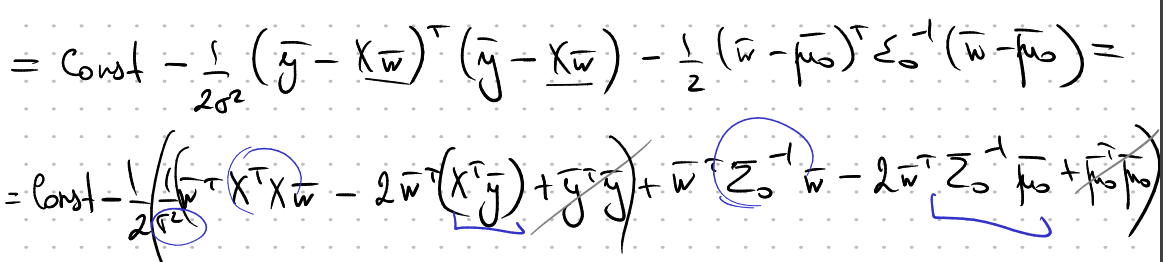 = Const - 1/(2σ²) (ȳ - Xw̄)ᵀ (ȳ - Xw̄) - 1/2 (w̄ - μ̄₀)ᵀ Σ₀⁻¹ (w̄ - μ̄₀) =
= Const - 1/2 ( 1/σ² ( w̄ᵀ XᵀX w̄ - 2 w̄ᵀ (Xᵀȳ) + ȳᵀȳ ) + w̄ᵀ Σ₀⁻¹ w̄ - 2 w̄ᵀ Σ₀⁻¹ μ̄₀ + μ̄₀ᵀ μ̄₀ )